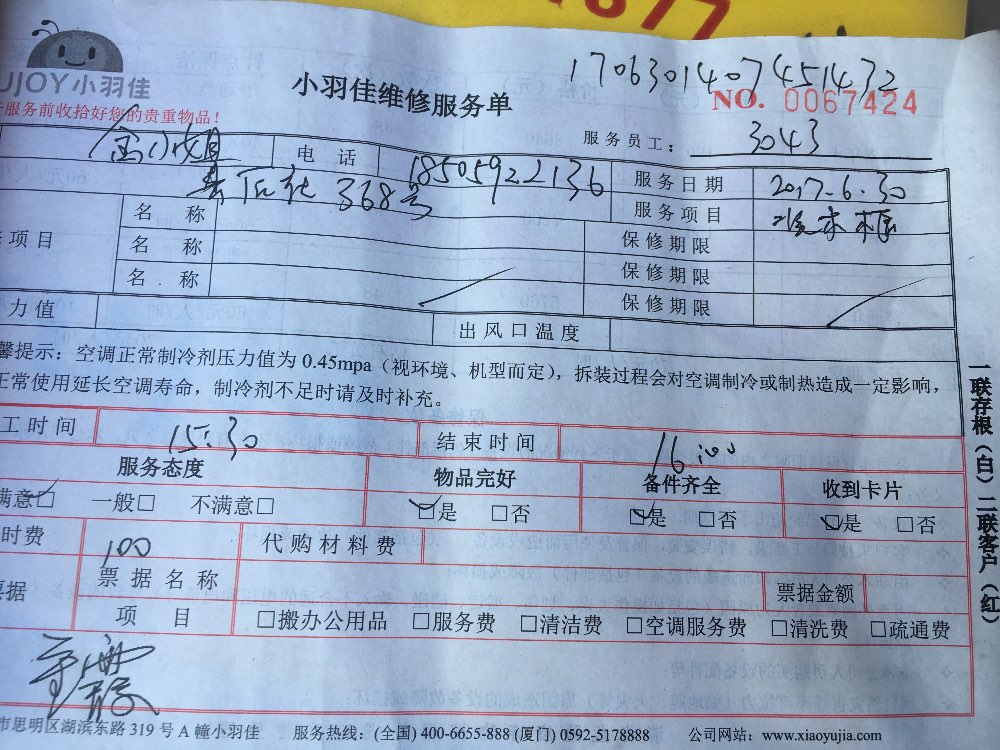 1877
UJOY小羽佳
小羽佳维修服务单
1706301407451432
NO. 0067424
服务前收拾好您的贵重物品！
服务员工： 3043
金小姐 电 话 18505922136 服务日期 2017.6.30
后社368号 服务项目
项目 名 称 保修期限
名 称 保修期限
名 称 保修期限
力值 出风口温度
馨提示：空调正常制冷剂压力值为 0.45mpa（视环境、机型而定），拆装过程会对空调制冷或制热造成一定影响，
正常使用延长空调寿命，制冷剂不足时请及时补充。
工时间 15:30 结束时间 16:00
服务态度 物品完好 备件齐全 收到卡片
满意☑ 一般□ 不满意□ ☑是 □否 ☑是 □否 ☑是 □否
时费 100 代购材料费
票据 票据名称 票据金额
项 目 □搬办公用品 □服务费 □清洁费 □空调服务费 □清洗费 □疏通费
市思明区湖滨东路 319 号 A 幢小羽佳 服务热线：(全国) 400-6655-888 (厦门) 0592-5178888 公司网站：www.xiaoyujia.com
一联存根（白）二联客户（红）